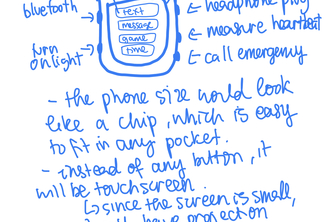 bluetooth
headphone plug
text
message
measure heartbeat
game
turn
on light
time
call emergency
- the phone size would look
like a chip, which is easy
to fit in any pocket.
- instead of any button, it
will be touchscreen.
↳ since the screen is small,
have projection